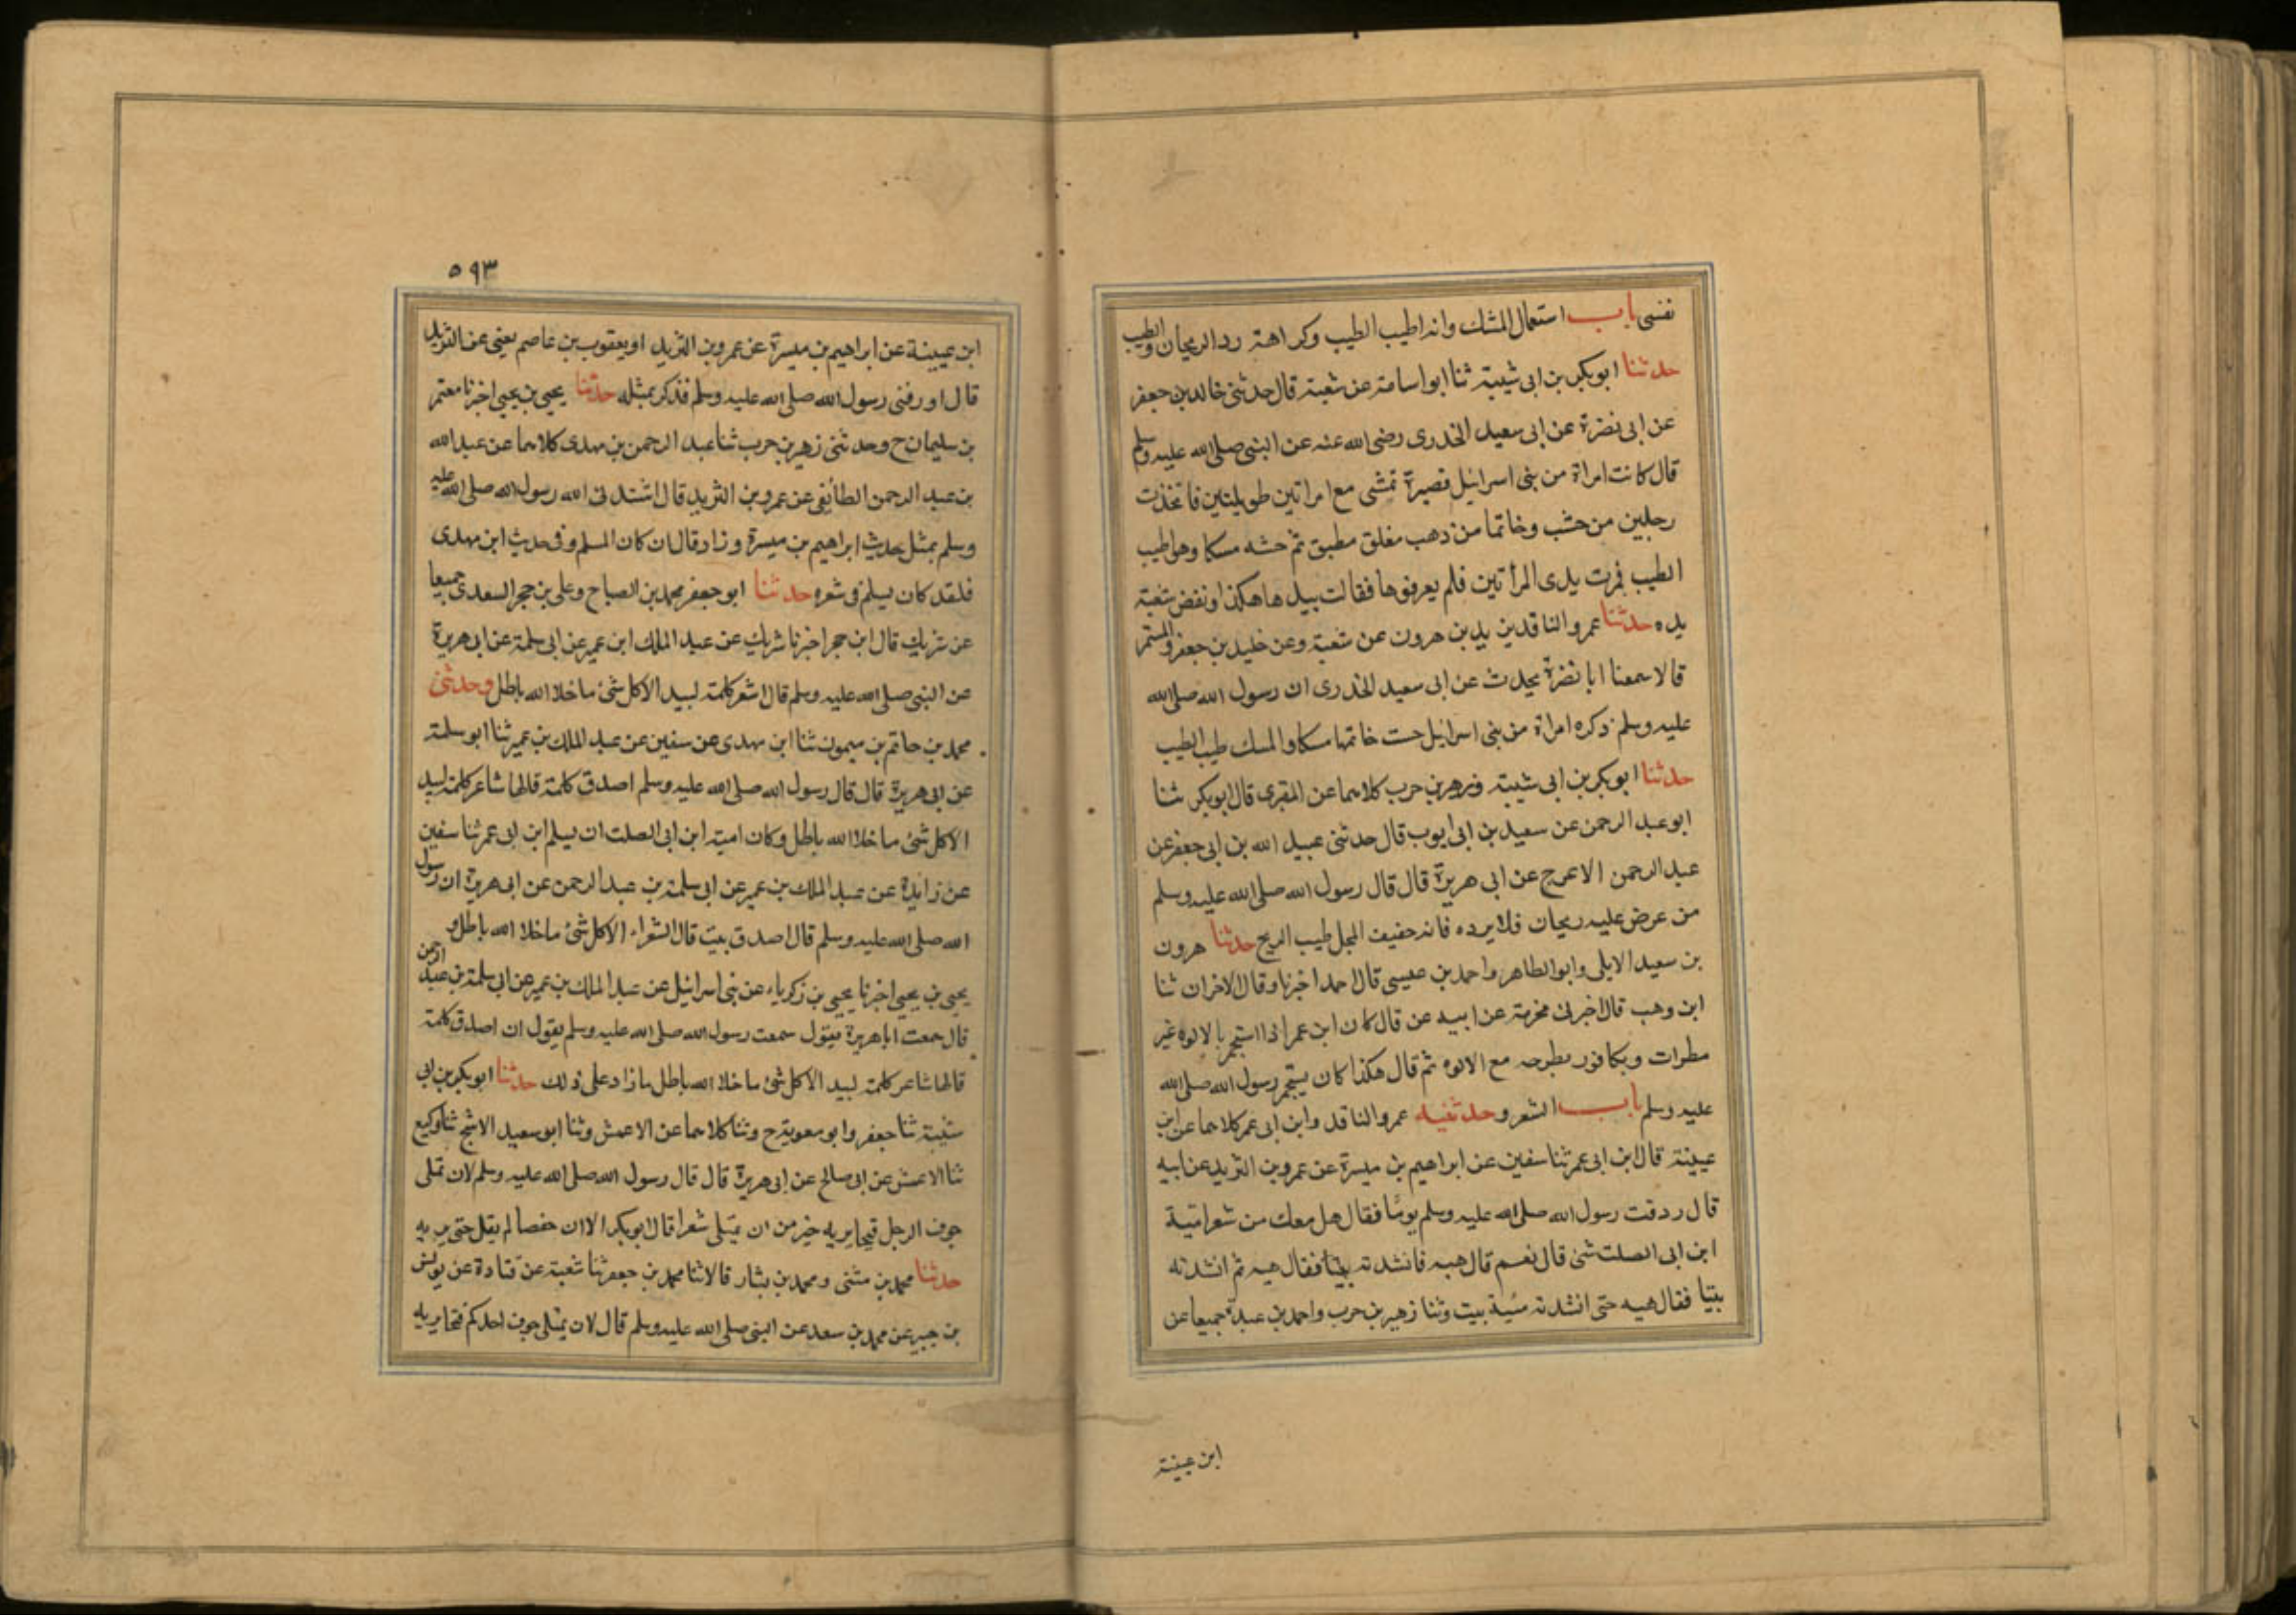 نفسى باب استعمال المشك وانه اطيب الطيب وكراهة رد الريحان والطيب
حدثنا ابوبكر بن ابى شيبة ثنا ابو اسامة عن شعبة قال حدثنى خالد بن جعفر
عن ابى نضرة عن ابى سعيد الخدرى رضى الله عنه عن النبى صلى الله عليه وسلم
قال كانت امراة من بنى اسرائيل قصيرة تمشى مع امراتين طويلتين فاتخذت
رجلين من خشب وخاتما من ذهب مغلق مطبق ثم حشه مسكا وهو اطيب
الطيب فمرت يدى المرأتين فلم يعرفوها فقالت بيدها هكذا ونفض شعبة
يده حدثنا عمرو الناقد بن يد بن هرون عن شعبة وعن خليد بن جعفر والمستمر
قالا سمعنا ابا نضرة يحدث عن ابى سعيد الخدرى ان رسول الله صلى الله
عليه وسلم ذكره امراة من بنى اسرائيل حست خاتمها مسكا والمسك طيب الطيب
حدثنا ابوبكر بن ابى شيبة وزهير بن حرب كلاهما عن المقبرى قال ابوبكر ثنا
ابو عبد الرحمن عن سعيد بن ابى ايوب قال حدثنى عبيد الله بن ابى جعفر عن
عبد الرحمن الاعرج عن ابى هريرة قال قال رسول الله صلى الله عليه وسلم
من عرض عليه ريحان فلا يرده فانه خفيف المجل طيب الريح حدثنا هرون
بن سعيد الايلى وابو الطاهر واحمد بن عيسى قال احمد اخبرنا وقال الاخران ثنا
ابن وهب قال اخبرنى مخرمة عن ابيه عن قال كان ابن عمر اذا استجمر بالالوه غير
مطرات وبكافور يطرحه مع الالوه ثم قال هكذا كان يستجمر رسول الله صلى الله
عليه وسلم باب الشعر وحدثنيه عمرو الناقد وابن ابى عمر كلاهما عن ابن
عيينة قال ابن ابى عمر ثنا سفين عن ابراهيم بن ميسرة عن عمرو بن الثريد عن ابيه
قال ردفت رسول الله صلى الله عليه وسلم يوما فقال هل معك من شعر امية
ابن ابى الصلت شئ قال نعم قال هيه فانشدته بيتا فقال هيه ثم انشدته
بيتا فقال هيه حتى انشدته مئية بيت وثنا زهير بن حرب واحمد بن عبدة جميعا عن
ابن عيينة
٥٩٣
ابن عيينة عن ابراهيم بن ميسرة عن عمرو بن الثريد او يعقوب بن عاصم يعنى عن الثريد
قال اورفنى رسول الله صلى الله عليه وسلم فذكر بمثله حدثنا يحيى بن يحيى اخبرنا معتمر
بن سليمان ح وحدثنى زهير بن حرب ثنا عبد الرحمن بن مهدى كلاهما عن عبد الله
بن عبد الرحمن الطائفى عن عمرو بن الثريد قال اشتدنى الله رسول الله صلى الله عليه
وسلم بمثل حديث ابراهيم بن ميسرة وزاد قال ان كان المسلم وفى حديث ابن مهدى
فلقد كان يسلم فى شعره حدثنا ابو جعفر محمد بن الصباح وعلى بن حجر السعدى جميعا
عن شريك قال ابن حجر اخبرنا شريك عن عبد الملك ابن عمير عن ابى سلمة عن ابى هريرة
عن النبى صلى الله عليه وسلم قال اشعر كلمة لبيد الاكل شئ ما خلا الله باطل وحدثنى
محمد بن حاتم بن ميمون ثنا ابن مهدى عن سفين عن عبد الملك بن عمير ثنا ابو سلمة
عن ابى هريرة قال قال رسول الله صلى الله عليه وسلم اصدق كلمة قالها شاعر كلمة لبيد
الاكل شئ ما خلا الله باطل وكان امية ابن ابى الصلت ان يسلم ابن ابى عمر ثنا سفين
عن زايدة عن عبد الملك بن عمير عن ابى سلمة بن عبد الرحمن عن ابى هريرة ان رسول
الله صلى الله عليه وسلم قال اصدق بيت قال الشعراء الاكل شئ ما خلا الله باطل و
يحيى بن يحيى اخبرنا يحيى بن زكرياء عن بنى اسرائيل عن عبد الملك بن عمير عن ابى سلمة بن عبد الرحمن
قال سمعت ابا هريرة يقول سمعت رسول الله صلى الله عليه وسلم يقول ان اصدق كلمة
قالها شاعر كلمة لبيد الاكل شئ ما خلا الله باطل ما زاد على ذلك حدثنا ابوبكر بن ابى
شيبة ثنا جعفر وابو معوية ح وثنا كلاهما عن الاعمش وثنا ابو سعيد الاشج ثنا وكيع
ثنا الاعمش عن ابى صالح عن ابى هريرة قال قال رسول الله صلى الله عليه وسلم لان تملى
جوف الرجل قيحا يريه خير من ان يمتلى شعرا قال ابوبكر الا ان حفصا لم يقل حتى يريه
حدثنا محمد بن مثنى ومحمد بن بشار قالا ثنا محمد بن جعفر ثنا شعبة عن قتادة عن يونس
بن جبير عن محمد بن سعد عن النبى صلى الله عليه وسلم قال لان يمتلى جوف احدكم قيحا يريه